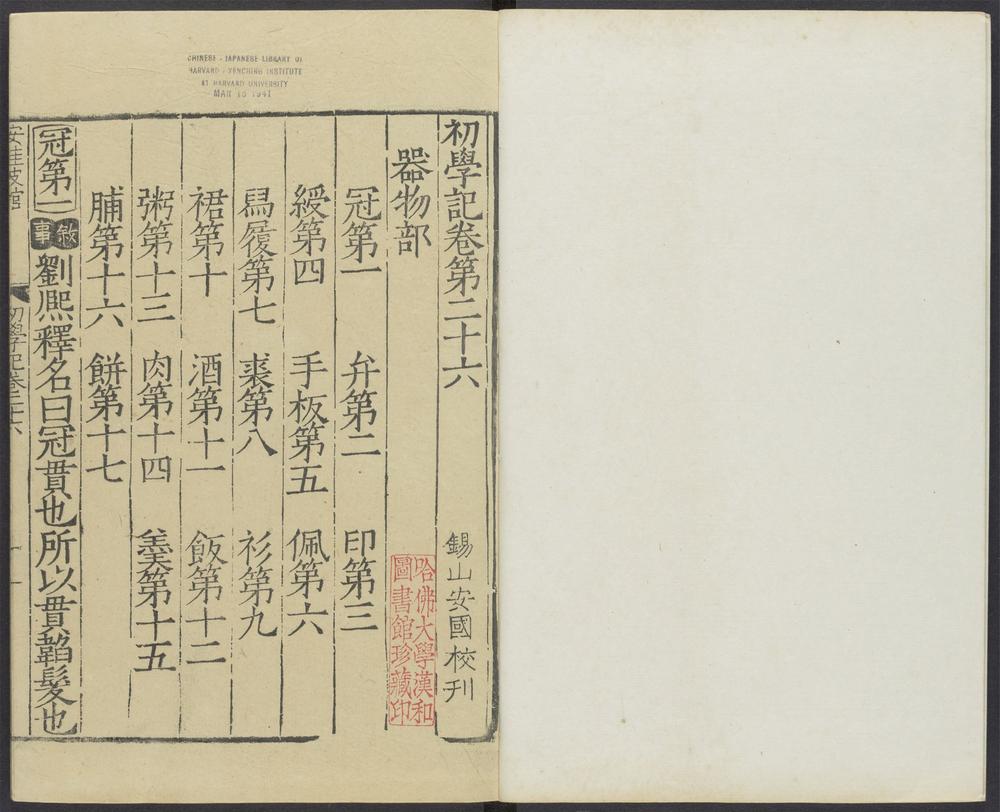 CHINESE - JAPANESE LIBRARY OF
HARVARD - YENCHING INSTITUTE
AT HARVARD UNIVERSITY
MAR 18 1941
初學記卷第二十六
錫山安國校刊
器物部
哈佛大學漢和
圖書館珍藏印
冠第一 弁第二 印第三
綬第四 手板第五 佩第六
舄履第七 裘第八 衫第九
裙第十 酒第十一 飯第十二
粥第十三 肉第十四 羹第十五
脯第十六 餅第十七
冠第一 敘事 劉熈釋名曰冠貫也所以貫韜髮也
安桂坡館
初學記卷二十六
一